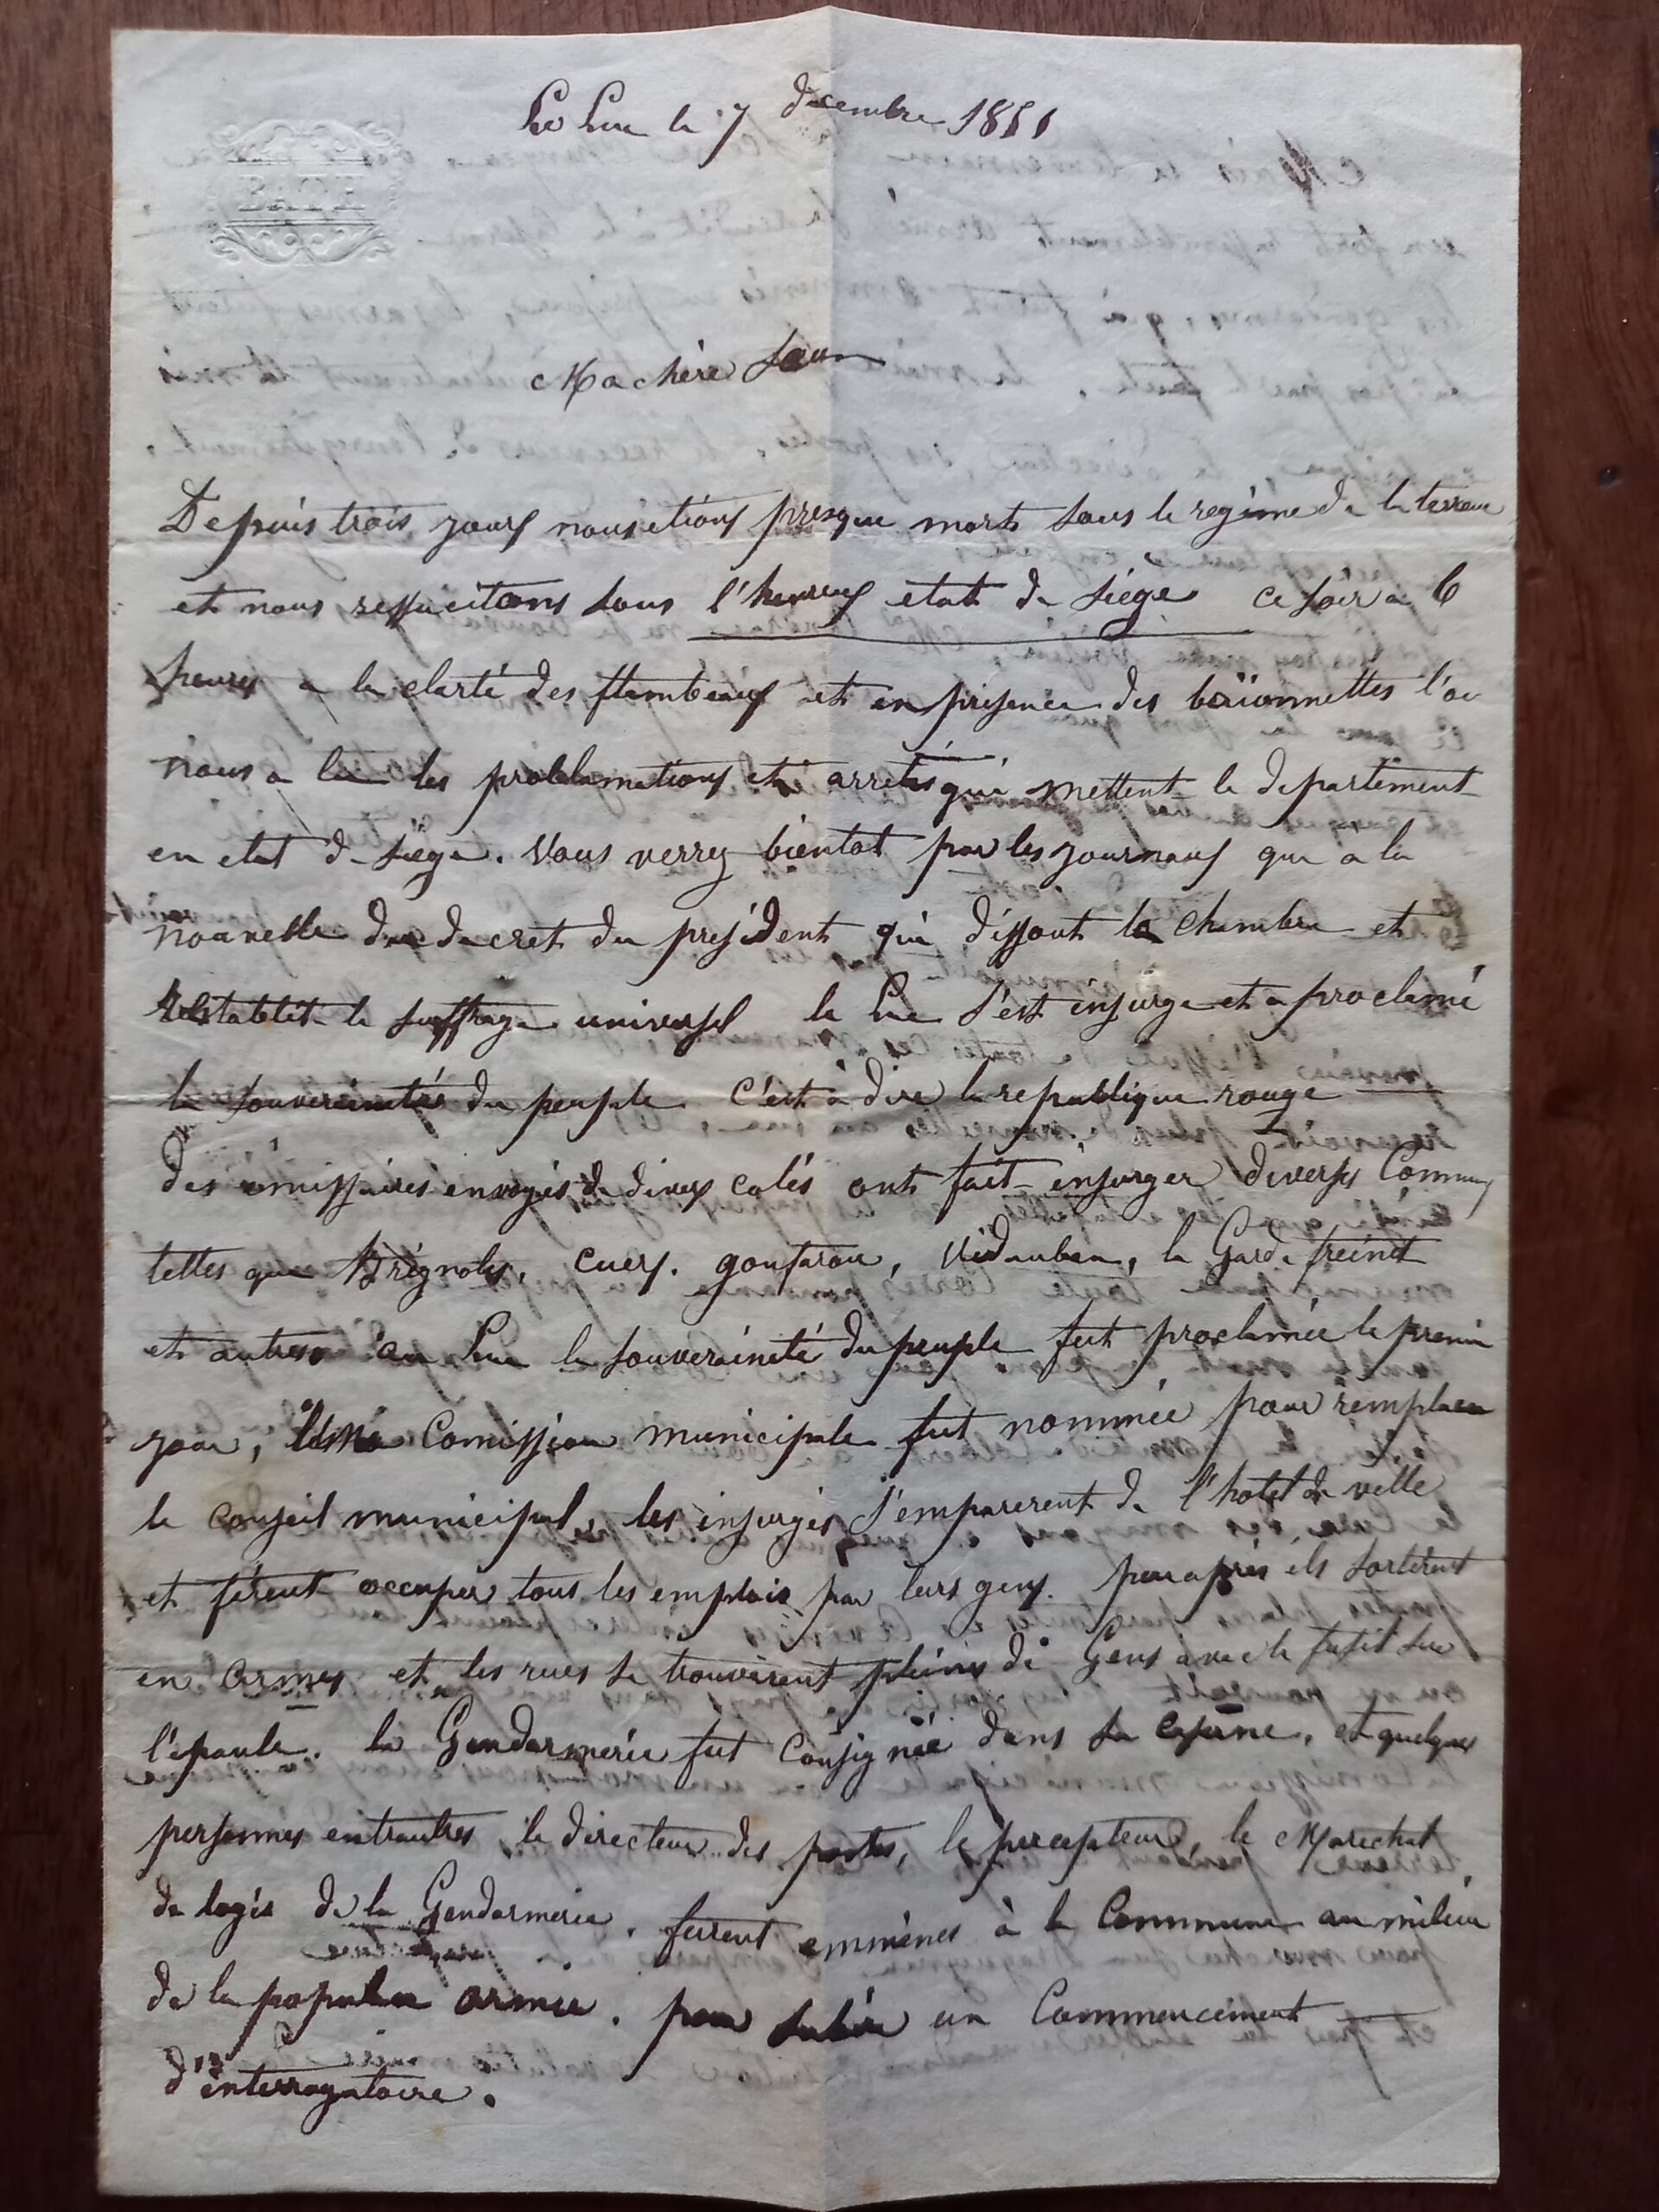 Le Luc le 7 decembre 1851
BATH
Ma chère Sœur
Depuis trois jours nous etions presque morts sous le regime de la terreur
et nous ressucitons sous l'heureux etat de siège ce soir a 6
heures a la clarté des flambeaux et en presence des baïonnettes l'on
nous a lu les proclamations et arretés qui mettent le departement
en etat de siege. Vous verrez bientot par les journaux que a la
nouvelle du decret du president qui dissout la chambre et
restablit le suffrage universel le Luc s'est insurge et a proclamé
la souveraineté du peuple c'est à dire la republique rouge
des émissaires envoyés de divers cotés ont fait insurger diverses Communes
telles que Brignoles, Cuers, gonfaron, Vidauban, la Garde freinet
et autres au Luc la souveraineté du peuple fut proclamée le premier
jour, Comission municipale fut nommée pour remplacer
le conseil municipal, les insurgés s'emparerent de l'hotel de ville
et firent occuper tous les emplois par leurs gens. peu après ils sortirent
en armes et les rues se trouvèrent pleines de Gens avec le fusil sur
l'epaule. la Gendarmerie fut consignée dans sa caserne, et quelques
personnes entrautres le directeur des postes, le percepteur, le Marechal
de logis de la Gendarmerie, furent emmenés à la Commune au milieu
de la populace armée, pour subir un Commencement
d'interrogatoire.